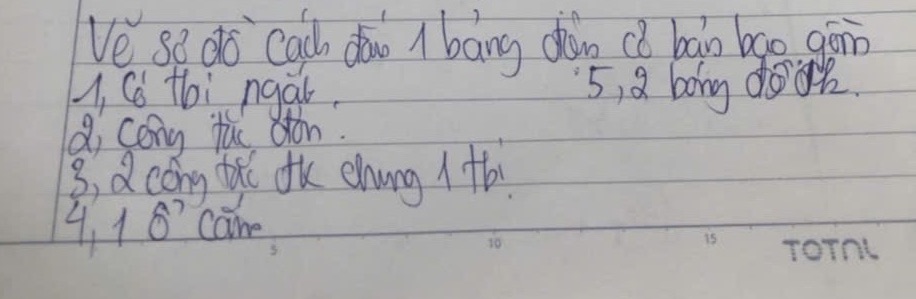 Vẽ sơ đồ cách đấu 1 bảng điện cơ bản bao gồm
1, Có tbị ngắt. 5, 2 bóng đ
2, công tắc đơn.
3, 2 công tắc đk chung 1 tbị.
4, 1 ổ cắm
5 10 15 TOTAL